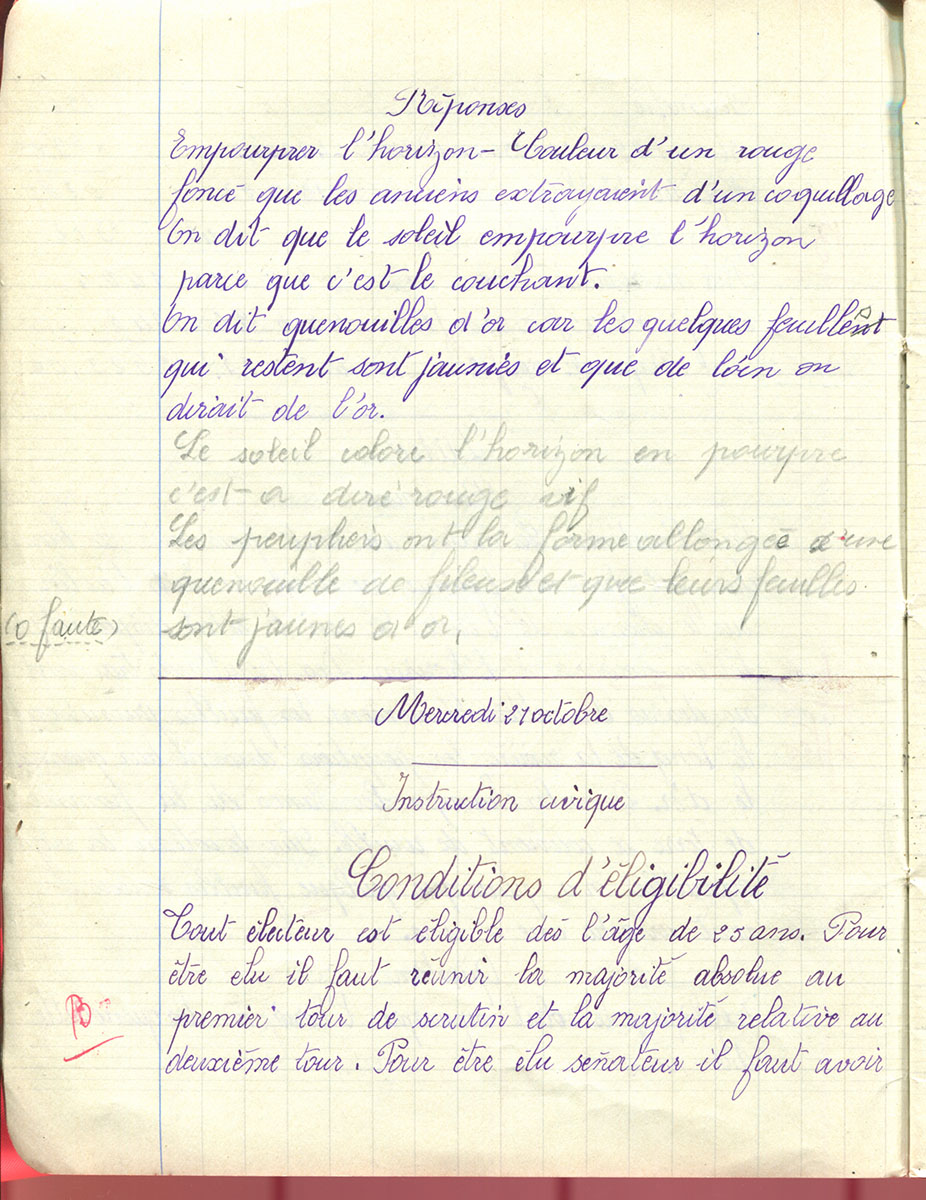 Réponses
Empourprer l'horizon - Couleur d'un rouge
foncé que les anciens extrayaient d'un coquillage
On dit que le soleil empourpre l'horizon
parce que c'est le couchant.
On dit quenouilles d'or car les quelques feuilles
qui restent sont jaunies et que de loin on
dirait de l'or.
Le soleil colore l'horizon en pourpre
c'est-a dire rouge vif
Les peupliers ont la forme allongée d'une
quenouille de fileuse et que leurs feuilles
sont jaunes d'or.
(0 faute)
Mercredi 21 octobre
Instruction civique
Conditions d'éligibilité
Tout électeur est éligible dès l'âge de 25 ans. Pour
être elu il faut réunir la majorité absolue au
premier tour de scrutin et la majorité relative au
B
deuxième tour. Pour être élu sénateur il faut avoir